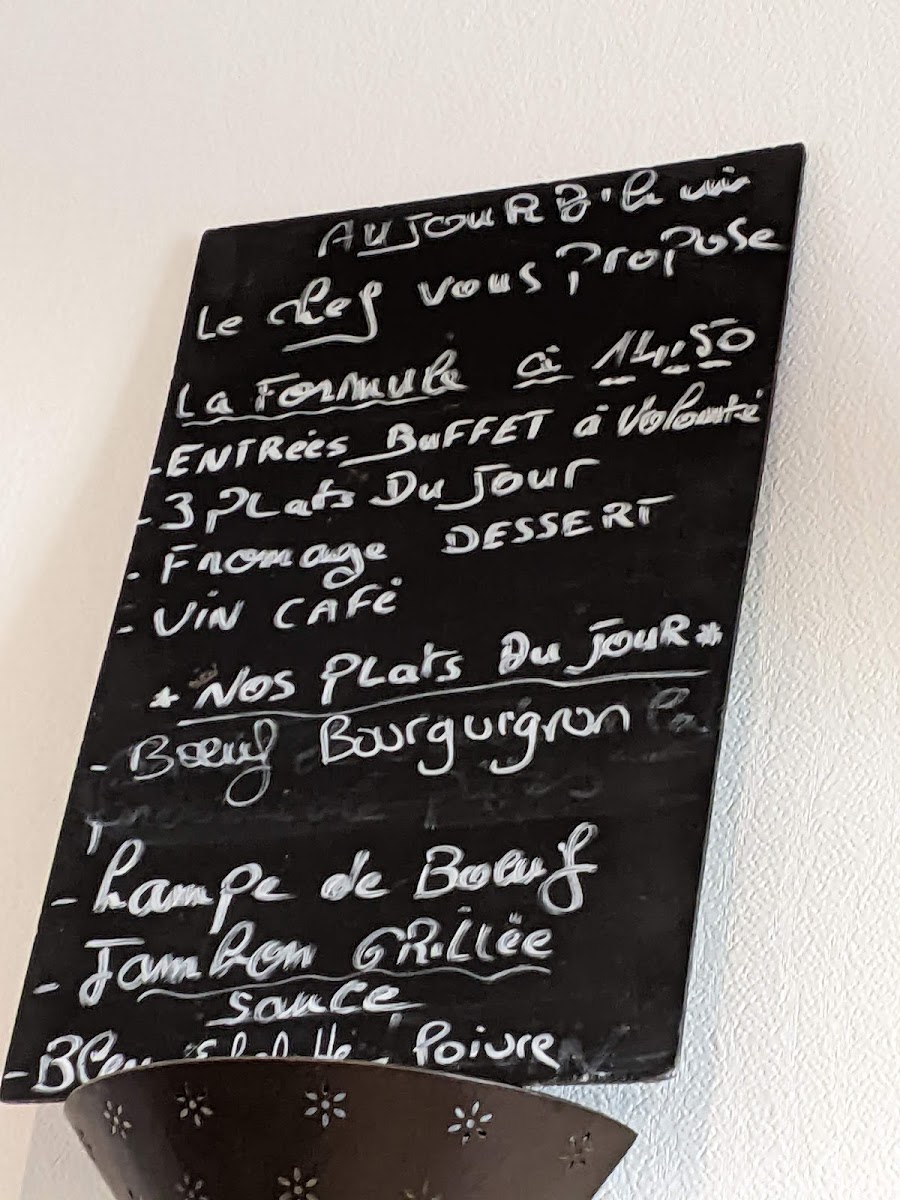 AUJOURD'hui
Le chef vous Propose
La Formule à 14,50
- ENTRées BUFFET à Volonté
- 3 PLats Du Jour
- Fromage DESSERT
- VIN CAFé
* Nos PLats Du JOUR *
- Bœuf Bourguignon
- hampe de Bœuf
- Jambon GRiLLée
sauce
- Bleu Poivre